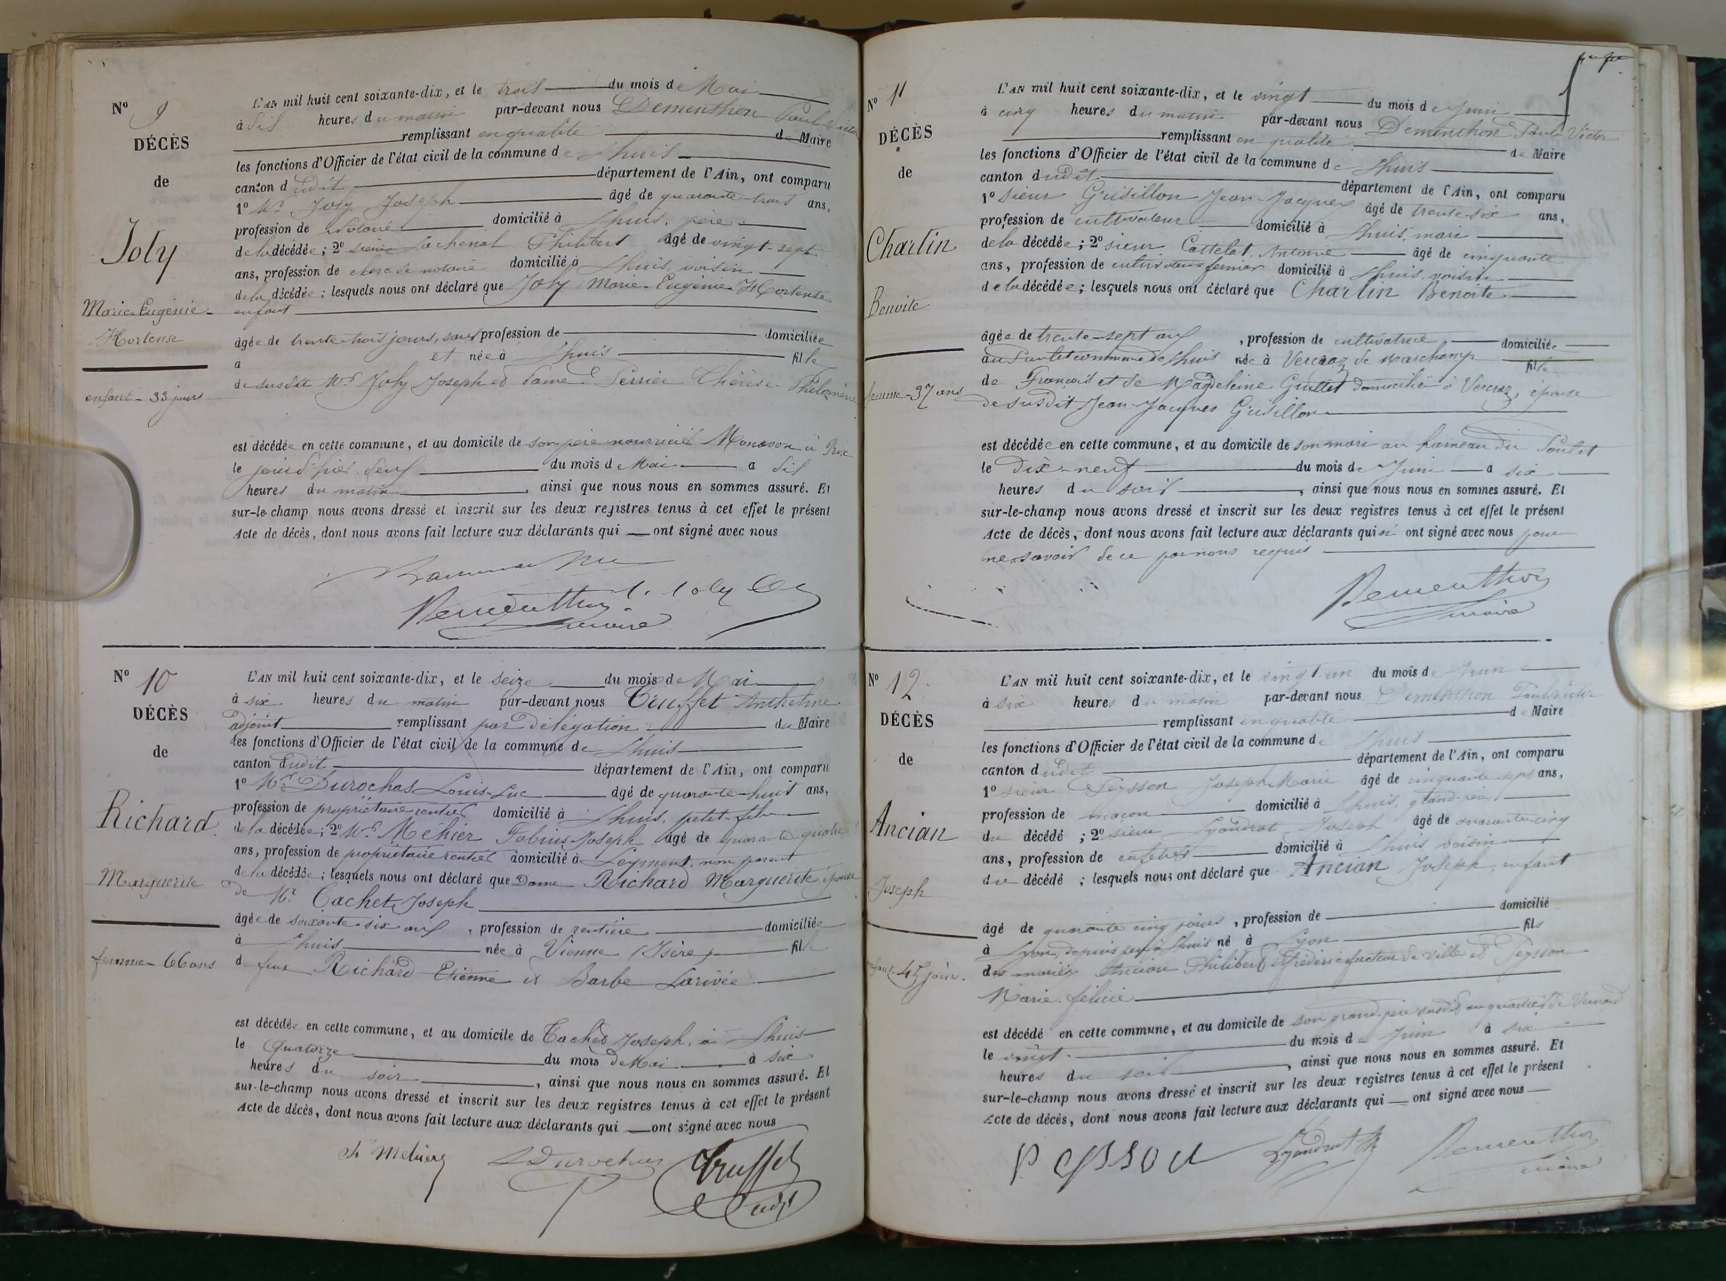 N° 9
DÉCÈS
de
Joly
Marie Eugénie
Hortense
enfant - 33 jours
L'AN mil huit cent soixante-dix, et le trois du mois de Mai
à six heures du matin par-devant nous Dementhon Paul Victor
remplissant en qualité de Maire
les fonctions d'Officier de l'état civil de la commune de Lhuis
canton dudit département de l'Ain, ont comparu
1° Mr Joly Joseph âgé de quarante-trois ans,
profession de Notaire domicilié à Lhuis, père
de la décédée ; 2° sieur Lachenal Philibert âgé de vingt-sept
ans, profession de clerc de notaire domicilié à Lhuis, voisin
de la décédée ; lesquels nous ont déclaré que Joly Marie Eugénie Hortense
enfant
âgée de trente-trois jours, sans profession de domiciliée
à et née à Lhuis fille
de susdit Mr Joly Joseph et dame Perrier Thérèse Philomène
est décédée en cette commune, et au domicile de son père nourricier à
le du mois de Mai à six
heures du matin, ainsi que nous nous en sommes assuré. Et
sur-le-champ nous avons dressé et inscrit sur les deux registres tenus à cet effet le présent
Acte de décès, dont nous avons fait lecture aux déclarants qui ont signé avec nous
Dementhon J. Joly
maire
N° 10
DÉCÈS
de
Richard
Marguerite
femme - 66 ans
L'AN mil huit cent soixante-dix, et le seize du mois de Mai
à six heures du matin par-devant nous Truffet Anthelme
adjoint remplissant par délégation du Maire
les fonctions d'Officier de l'état civil de la commune de Lhuis
canton dudit département de l'Ain, ont comparu
1° Mr Durochat Louis Luc âgé de quarante-huit ans,
profession de propriétaire rentier domicilié à Lhuis, petit-fils
de la décédée ; 2° Mr Mehier Joseph âgé de quarante quatre
ans, profession de propriétaire rentier domicilié à Leyment, non parent
de la décédée ; lesquels nous ont déclaré que Dame Richard Marguerite épouse
de Mr Cachet Joseph
âgée de soixante-six ans, profession de rentière domiciliée
à Lhuis née à Vienne (Isère) fille
de feus Richard Etienne et Barbe Larivée
est décédée en cette commune, et au domicile de Cachet Joseph, à Lhuis
le quatorze du mois de Mai à six
heures du soir, ainsi que nous nous en sommes assuré. Et
sur-le-champ nous avons dressé et inscrit sur les deux registres tenus à cet effet le présent
Acte de décès, dont nous avons fait lecture aux déclarants qui ont signé avec nous
Durochat Truffet
adjt
N° 11
DÉCÈS
de
Charlin
Benoite
femme - 37 ans
L'AN mil huit cent soixante-dix, et le vingt du mois de Juin
à cinq heures du matin par-devant nous Dementhon Paul Victor
remplissant en qualité de Maire
les fonctions d'Officier de l'état civil de la commune de Lhuis
canton dudit département de l'Ain, ont comparu
1° sieur Grisillon Jean Jacques âgé de trente-six ans,
profession de cultivateur domicilié à Lhuis, mari
de la décédée ; 2° sieur Cattelat Antoine âgé de cinquante
ans, profession de cultivateur fermier domicilié à Lhuis, voisin
de la décédée ; lesquels nous ont déclaré que Charlin Benoite
âgée de trente-sept ans, profession de cultivatrice domiciliée
au commune de Lhuis née à Vercraz de Marchamp fille
de François et de Magdeleine Guittet domiciliés à Vercraz, épouse
de susdit Jean-Jacques Grisillon
est décédée en cette commune, et au domicile de son mari au hameau du
le Dix-neuf du mois de Juin à six
heures du soir, ainsi que nous nous en sommes assuré. Et
sur-le-champ nous avons dressé et inscrit sur les deux registres tenus à cet effet le présent
Acte de décès, dont nous avons fait lecture aux déclarants qui n'ont signé avec nous pour
ne savoir de ce par nous requis
Dementhon
maire
N° 12
DÉCÈS
de
Ancian
Joseph
enfant 45 jours
L'AN mil huit cent soixante-dix, et le vingt un du mois de Juin
à six heures du matin par-devant nous Dementhon Paul Victor
remplissant en qualité de Maire
les fonctions d'Officier de l'état civil de la commune de Lhuis
canton dudit département de l'Ain, ont comparu
1° sieur Peysson Joseph Marie âgé de cinquante sept ans,
profession de maçon domicilié à Lhuis, grand-père
du décédé ; 2° sieur Lyaudrat Joseph âgé de quarante-cinq
ans, profession de domicilié à Lhuis voisin
du décédé ; lesquels nous ont déclaré que Ancian Joseph, enfant
âgé de quarante cinq jours, profession de domicilié
à Lyon, depuis à Lhuis né à Lyon fils
des mariés Ancian Philibert facteur de ville et Peysson
Marie félicie
est décédé en cette commune, et au domicile de son grand-père susdit au quartier de
le vingt du mois de Juin à six
heures du soir, ainsi que nous nous en sommes assuré. Et
sur-le-champ nous avons dressé et inscrit sur les deux registres tenus à cet effet le présent
Acte de décès, dont nous avons fait lecture aux déclarants qui ont signé avec nous
Peysson Lyaudrat Dementhon
maire